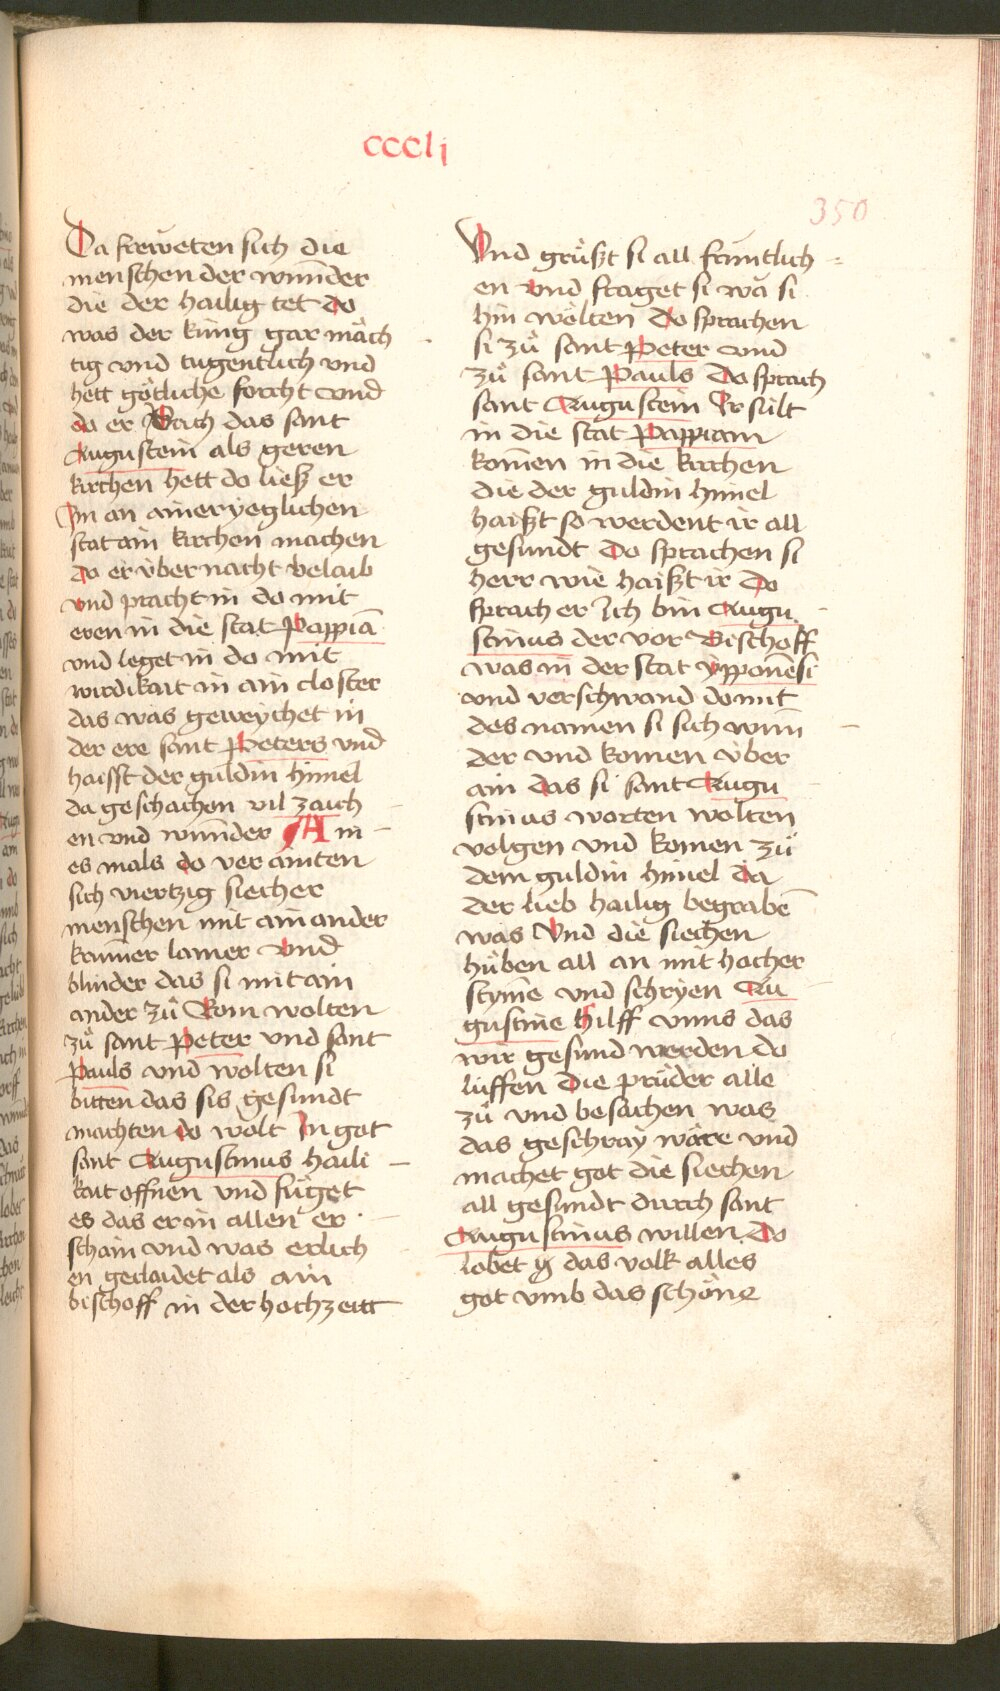 cccli
350
Da freweten sich die
menschen der wunder
die der hailig tet do
was der kúng gar mäch
tig vnd tugentlich vnd
hett götliche forcht vnd
do er sach das sant
Augustein als geren
kirchen hett do liesz er
Im an ainer yeglichen
stat ain kirchen machen
do er vber nacht belaib
vnd pracht in do mit
eren in die stat Pappiā
vnd leget in do mit
wirdikait in ain closter
das was geweychet in
der ere sant Peters vnd
haisst der guldin himel
da geschachen vil zaich
en vnd wunder Ain
es mals do verainten
sich viertzig siecher
menschen mit ain ander
krum̄er lamer vnd
blinder das si mit ain
ander zů Rom wolten
zů sant Peter vnd sant
Pauls vnd wolten si
bitten das sis gesundt
machten do wolt In got
sant Augustinus haili
kait offnen vnd fůget
es das er in allen er
schain vnd was erlich
en geclaidet als ain
bischoff in der hochzeitt
Vnd grůszt si all fruntlich
en vnd fraget si wa si
hin wölten Do sprachen
si zů sant Peter vnd
zů sant Pauls Do sprach
sant Augustein Ir sült
in die stat Pappiam
komen in die kirchen
die der guldin himel
haiszt so werdent ir all
gesundt Do sprachen si
herr wie haiszt ir Do
sprach er Ich bin Augu
stinus der vor Bischoff
was in der stat ypponēsi
vnd verschwand do mit
des namen si sich wun
der vnd komen vber
ain das si sant Augu
stinus worten wolten
volgen vnd komen zů
dem guldin himel da
der lieb hailig begrabē
was Vnd die siechen
hůben all an mit hocher
stym̄e vnd schryen Au
gustine hilff vnns das
wir gesund werden do
luffen die prüder alle
zů vnd besachen was
das geschray wäre vnd
machet got die siechen
all gesundt durch sant
Augustinus willen Do
lobet das volk alles
got vmb das schöne